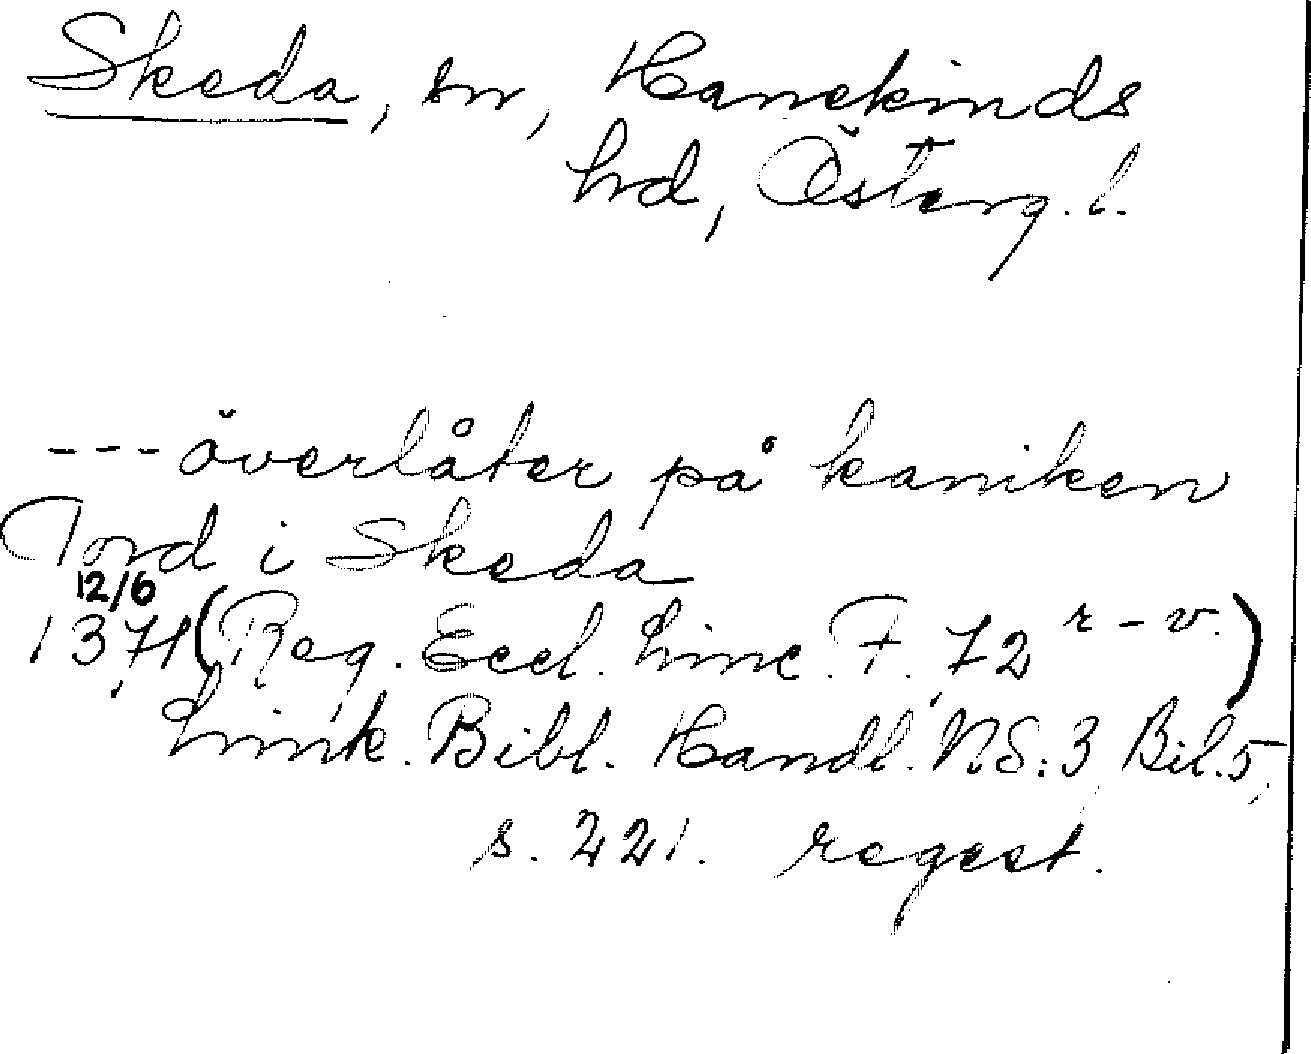 Skeda, sn, Hanekinds
hd, Österg. l.
--- överlåter på kaniken
Tord i Skeda
12/6
1371 (Reg. Eccl. Linc. F. 72 r-v.)
Link. Bibl. Handl. NS:3, Bil. 5,
s. 221. regest.